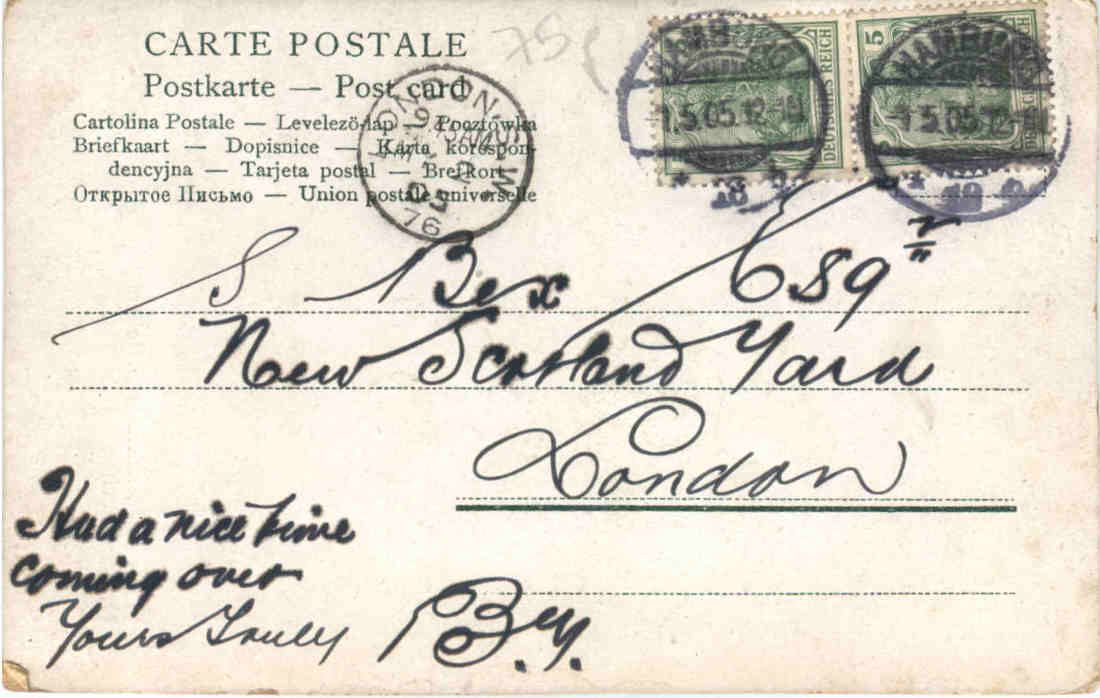 CARTE POSTALE
Postkarte — Post card
Cartolina Postale — Levelező-lap — Pocztówka
Briefkaart — Dopisnice — Karta korespon-
dencyjna — Tarjeta postal — Brefkort
Открытое Письмо — Union postale universelle
75
LONDON. W
MY 2
05
76
HAMBURG
1.5.05.12-1N
* 18 *
DEUTSCHES REICH
HAMBURG
1.5.05.12-1N
* 18 *
5
DEUTSCHES REICH
S Bex Esqr
New Scotland Yard
London
Had a nice time
coming over
Yours Truly